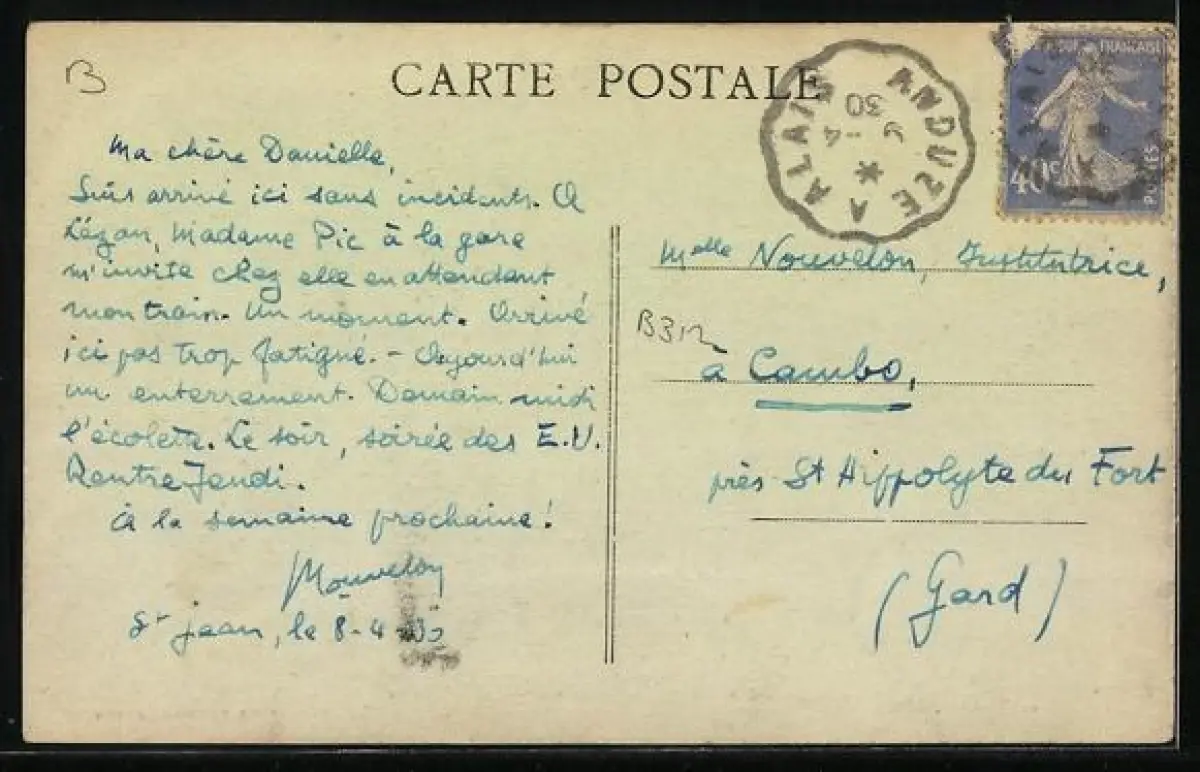 B
CARTE POSTALE
ANDUZE A ALAIS
-4
30
REPUBLIQUE FRANÇAISE
40c
POSTES
Ma chère Danielle,
Suis arrivé ici sans incidents. A
Lézan, Madame Pic à la gare
m'invite chez elle en attendant
mon train. Un moment. Arrivé
ici pas trop fatigué. - Aujourd'hui
un enterrement. Demain midi
l'écolete. Le soir, soirée des E.U.
Rentre Jeudi.
à la semaine prochaine!
St jean, le 8-4-30
Melle Nouvelon, Institutrice,
B312
à Cambo,
près St Hippolyte du Fort
(Gard)